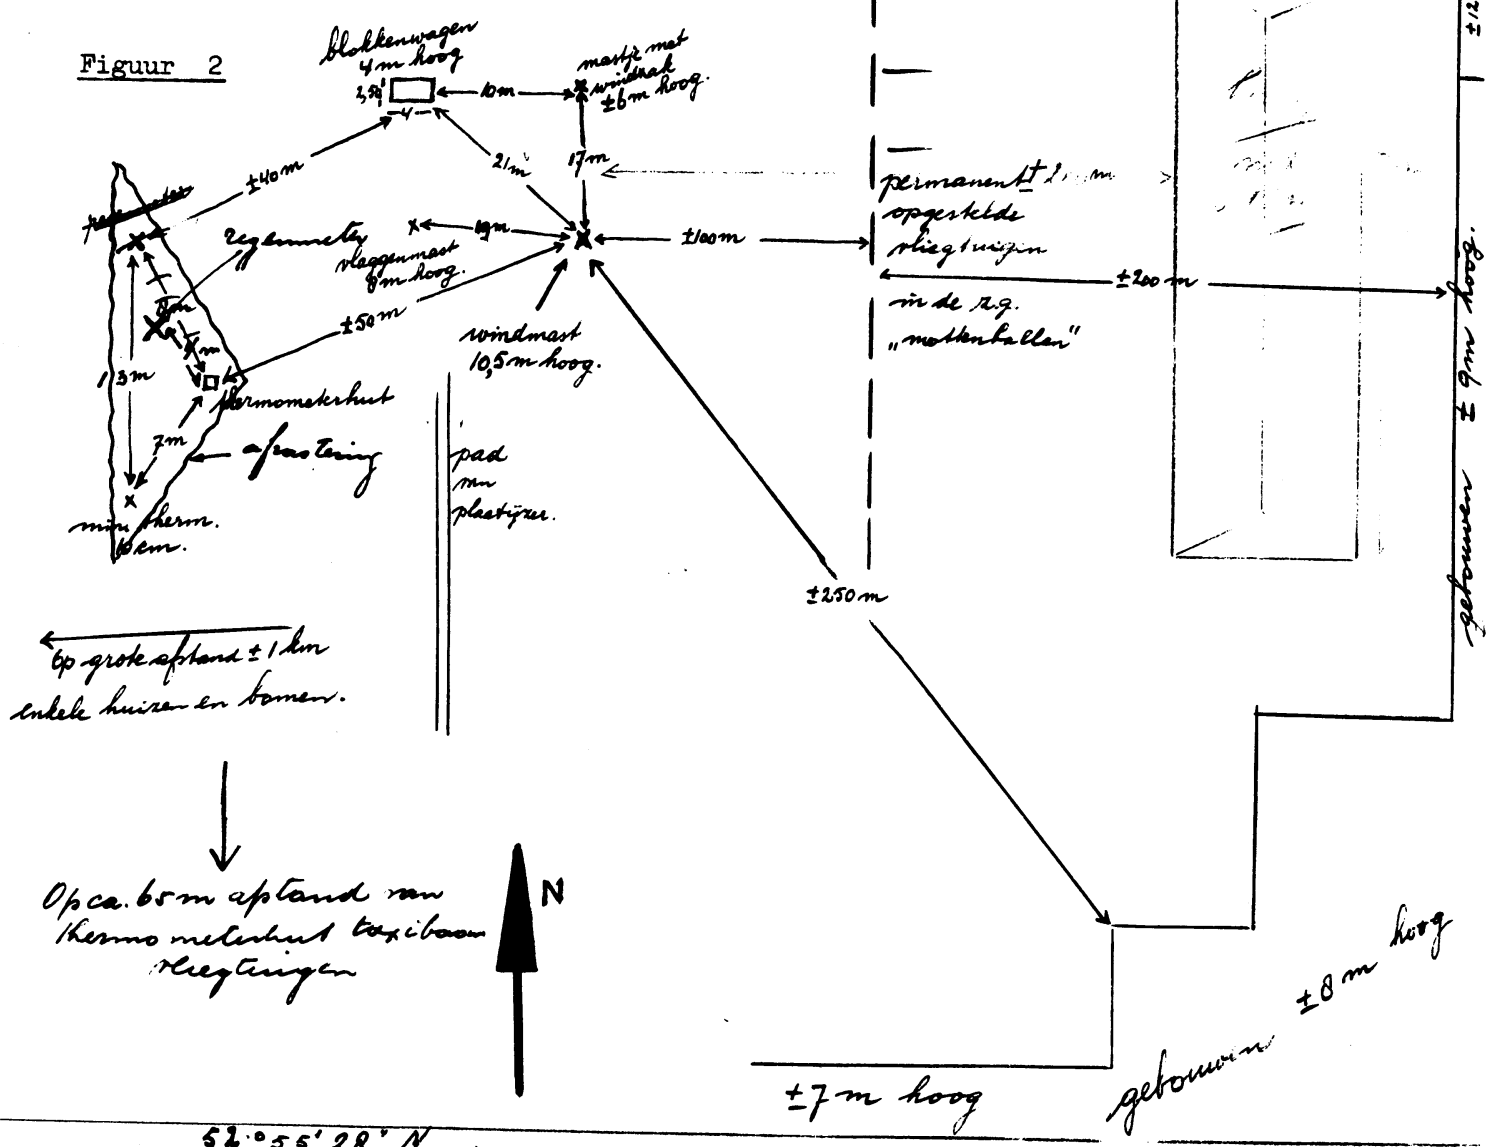 Figuur 2
blokkenwagen
4m hoog
2,50
4
10m
mastje met
windzak
±6m hoog.
±12
±40m
21m
17m
regenmeter
vlaggenmast
8m hoog.
19m
±100m
permanent
opgestelde
vliegtuigen
±200m
in de z.g.
„mottenballen"
±50m
windmast
10,5m hoog.
13m
thermometerhut
7m
afrastering
min. therm.
10cm.
pad
plaatijzer.
gebouwen ±9m hoog.
±250m
Op grote afstand ±1km
enkele huizen en bomen.
Op ca. 65m afstand van
thermometerhut taxibaan
vliegtuigen
N
±7m hoog
gebouwen ±8m hoog
52°55'28" N